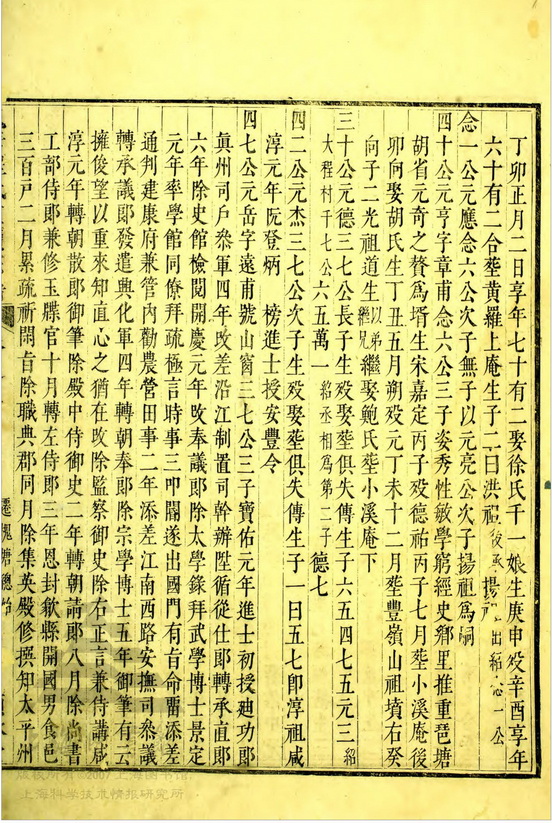 丁卯正月二日享年七十有二娶徐氏千一娘生庚申歿辛酉享年
六十有二合塟黄羅上庵生子二曰洪祖後承揚祖出紹念一公
念一公元應念六公次子無子以元亮公次子揚祖爲嗣
四十公元亨字章甫念六公三子姿秀性敏學窮經史鄉里推重琶塘
胡省元奇之贅爲壻生宋嘉定丙子歿德祐丙子七月塟小溪庵後
卯向娶胡氏生丁丑五月朔歿元丁未十二月塟豐嶺山祖墳右癸
向子二光祖道生以弟繼兄繼娶鮑氏塟小溪庵下
三十公元德三七公長子生歿娶塟俱失傳生子六五四七五元三紹
大程村千七公六五萬一紹丞相爲第二子德七
四二公元杰三七公次子生歿娶塟俱失傳生子一曰五七卽淳祖咸
淳元年阮登炳榜進士授安豐令
四七公元岳字遠甫號山窗三七公三子寶佑元年進士初授廸功郎
眞州司戶叅軍四年改差沿江制置司幹辦陞循從仕郎轉承直郎
六年除史館檢閱開慶元年改奉議郎除太學錄拜武學博士景定
元年率學館同僚拜疏極言時事三叩閽遂出國門有旨命甯添差
通判建康府兼管內勸農營田事二年添差江南西路安撫司叅議
轉承議郎發遣興化軍四年轉朝奉郎除宗學博士五年御筆有云
擁俊望以重來知直心之猶在改除監察御史除右正言兼侍講咸
淳元年轉朝散郎御筆除殿中侍御史二年轉朝請郎八月除尚書
工部侍郎兼修玉牒官十月轉左侍郎三年恩封歙縣開國男食邑
三百戶二月累疏祈閑旨除職典郡同月除集英殿修撰知太平州
遷槐塘總始
版权所有©2007上海图书馆
上海科学技术情报研究所